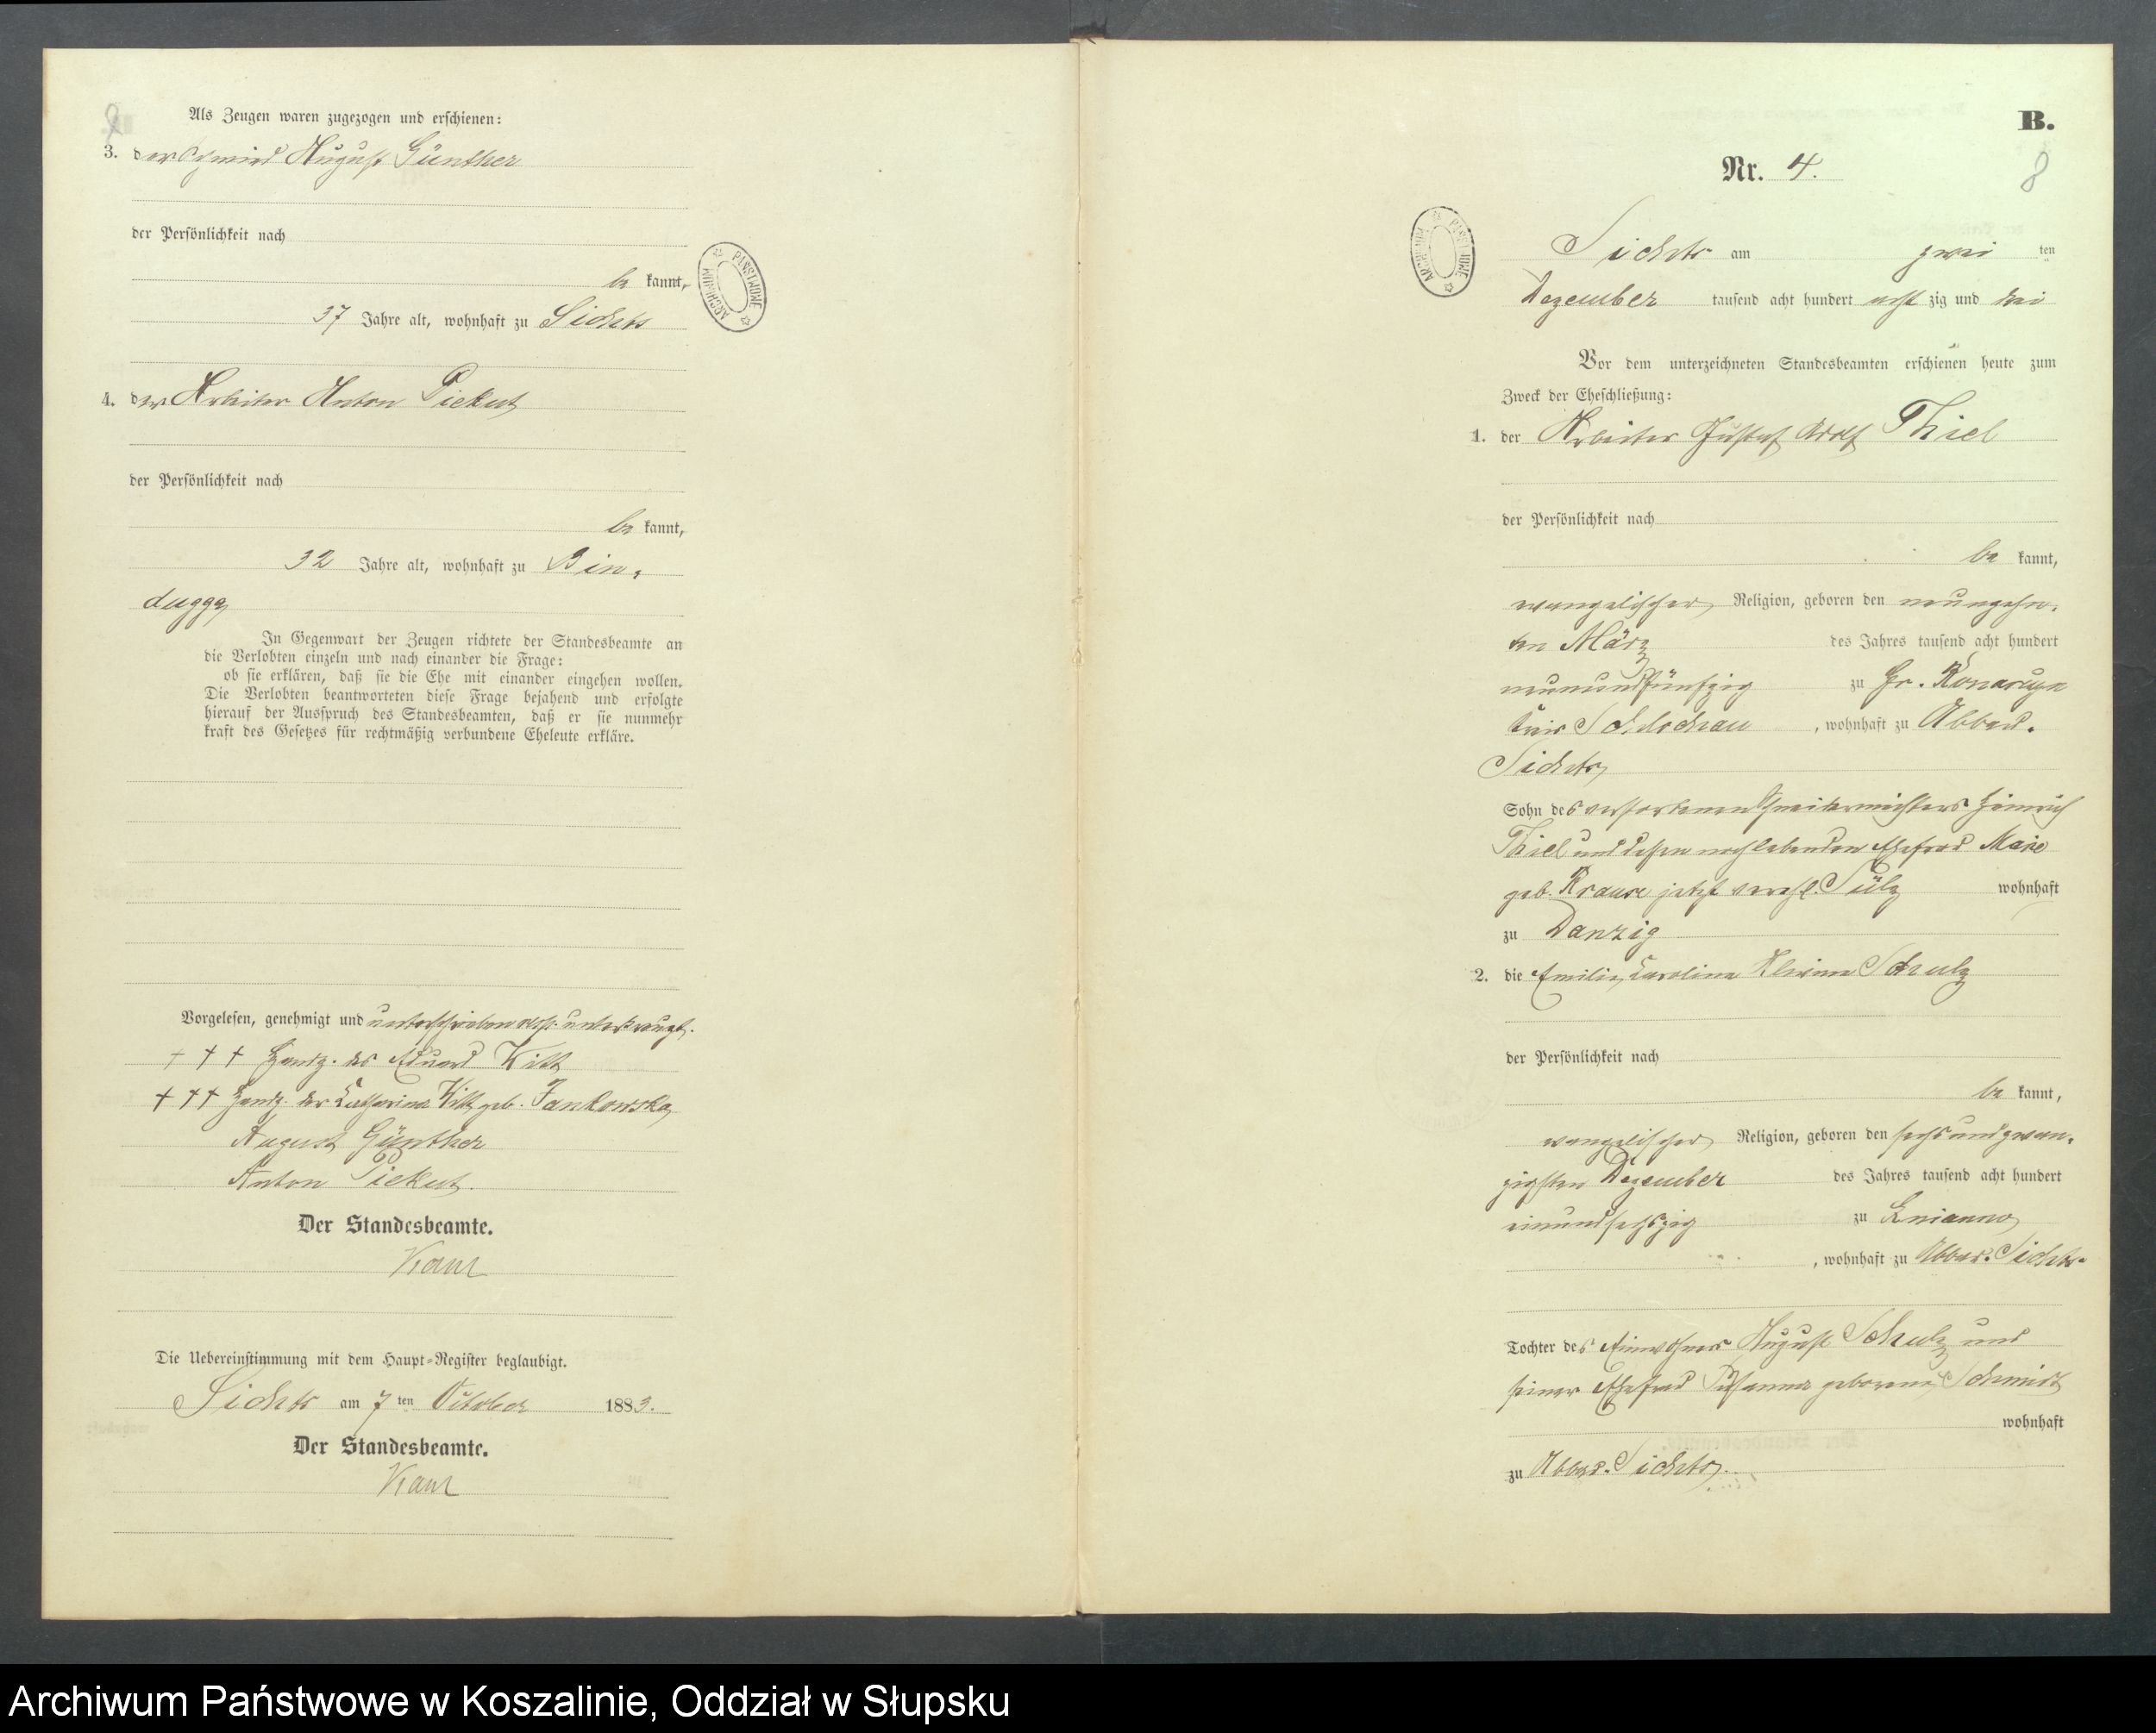 Als Zeugen waren zugezogen und erschienen:
3. der Schmied August Günther
der Persönlichkeit nach
be kannt,
37 Jahre alt, wohnhaft zu Sichts
4. der Arbeiter Anton Piekut
der Persönlichkeit nach
be kannt,
32 Jahre alt, wohnhaft zu Bin-
dugga
In Gegenwart der Zeugen richtete der Standesbeamte an
die Verlobten einzeln und nach einander die Frage:
ob sie erklären, daß sie die Ehe mit einander eingehen wollen.
Die Verlobten beantworteten diese Frage bejahend und erfolgte
hierauf der Ausspruch des Standesbeamten, daß er sie nunmehr
kraft des Gesetzes für rechtmäßig verbundene Eheleute erkläre.
Vorgelesen, genehmigt und unterschrieben resp. unterkreuzt.
† † † Handz. des Eduard Witt
† † † Handz. der Catharina Witt geb. Jankowska
August Günther
Anton Piekut.
Der Standesbeamte.
Die Uebereinstimmung mit dem Haupt-Register beglaubigt.
Sichts am 7 ten October 1883.
Der Standesbeamte.
B.
8
Nr. 4.
Sichts am zwei ten
Dezember tausend acht hundert acht zig und drei
Vor dem unterzeichneten Standesbeamten erschienen heute zum
Zweck der Eheschließung:
1. der Arbeiter Gustaf Adolf Thiel
der Persönlichkeit nach
be kannt,
evangelischer Religion, geboren den neunzehn-
ten März des Jahres tausend acht hundert
neunundfünfzig zu Gr. Konarczyn
Kreis Schlochau, wohnhaft zu Abbau-
Sichts
Sohn des verstorbenen Heinrich
Thiel und dessen noch lebenden Ehefrau Marie
geb. Krause jetzt verehl. Sülz wohnhaft
zu Danzig
2. die Emilie, Caroline Alwine Schulz
der Persönlichkeit nach
be kannt,
evangelischer Religion, geboren den sechsundzwan-
zigsten Dezember des Jahres tausend acht hundert
einundsechszig zu
, wohnhaft zu Abbau-Sichts-
Tochter des Einwohners August Schulz und
seiner Ehefrau geborene Schmidt
wohnhaft
zu Abbau-Sichts.
ARCHIWUM PAŃSTWOWE
ARCHIWUM PAŃSTWOWE
Archiwum Państwowe w Koszalinie, Oddział w Słupsku